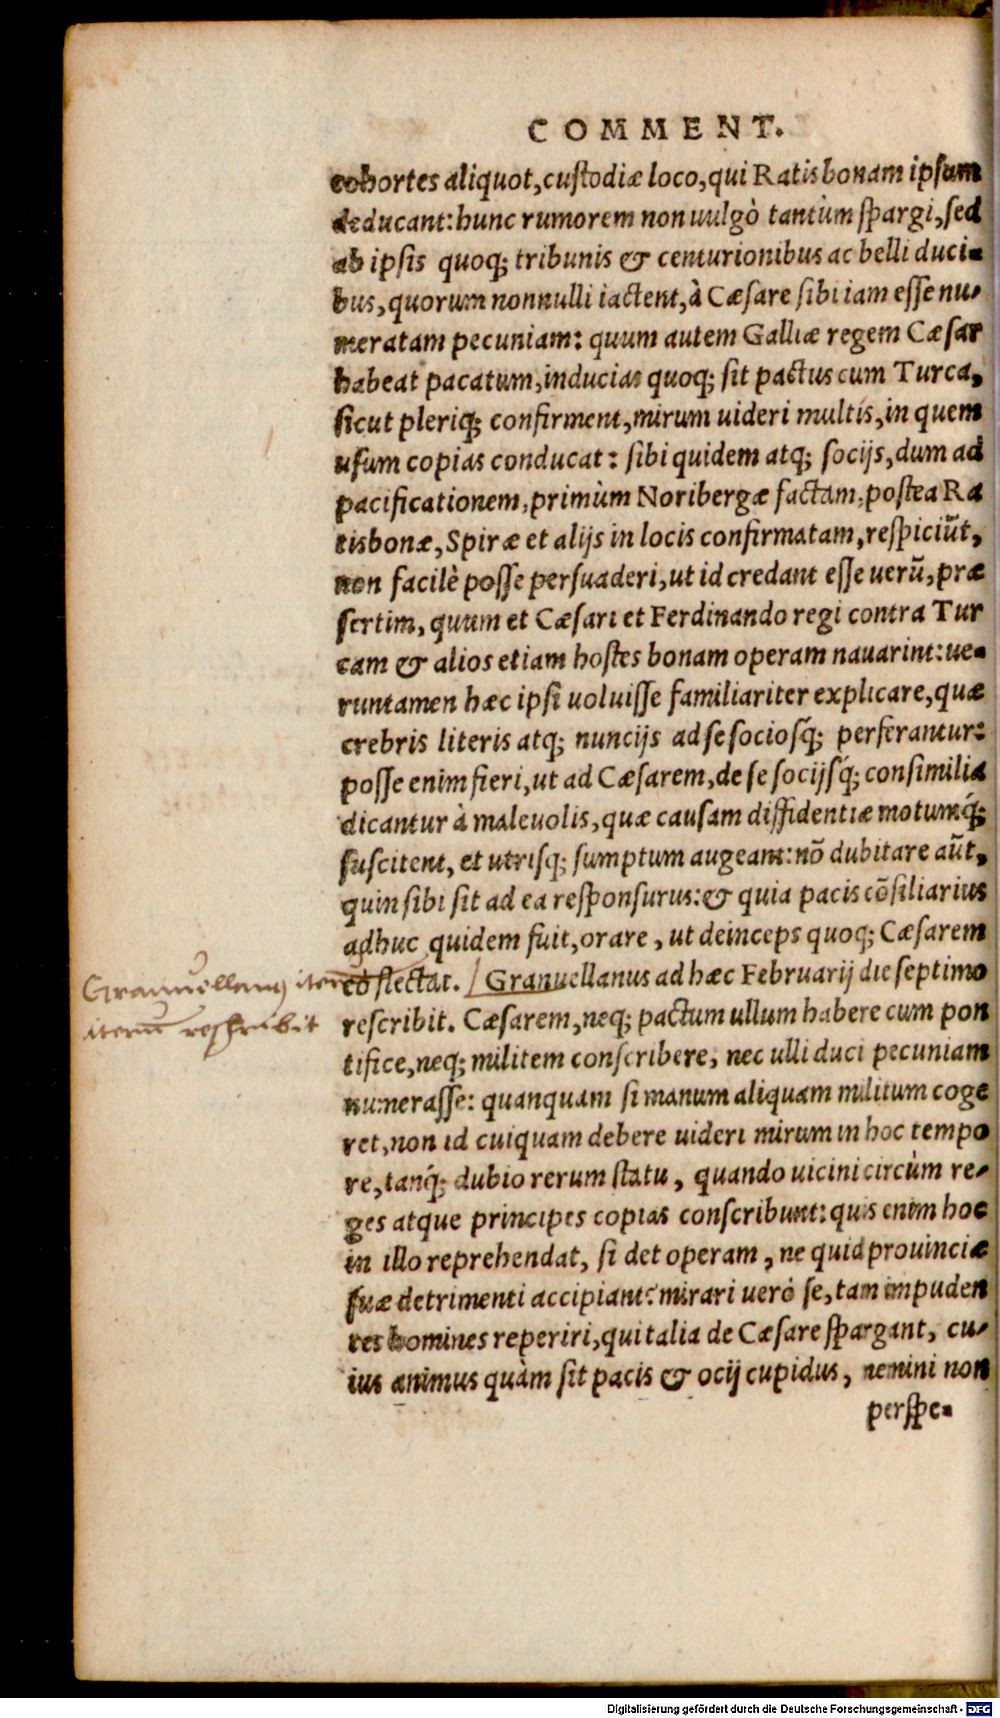 COMMENT.
cohortes aliquot, custodiæ loco, qui Ratisbonam ipsum
deducant: hunc rumorem non uulgò tantùm spargi, sed
ab ipsis quoq; tribunis & centurionibus ac belli duci-
bus, quorum nonnulli iactent, à Cæsare sibi iam esse nu-
meratam pecuniam: quum autem Galliæ regem Cæsar
habeat pacatum, inducias quoq; sit pactus cum Turca,
sicut pleriq; confirment, mirum uideri multis, in quem
usum copias conducat: sibi quidem atq; socijs, dum ad
pacificationem, primùm Noribergæ factam, postea Ra
tisbonæ, Spiræ et alijs in locis confirmatam, respiciūt,
non facilè posse persuaderi, ut id credant esse uerū, præ
sertim, quum et Cæsari et Ferdinando regi contra Tur
cam & alios etiam hostes bonam operam nauarint: ue-
runtamen hæc ipsi uoluisse familiariter explicare, quæ
crebris literis atq; nuncijs ad se sociosq́; perferantur:
posse enim fieri, ut ad Cæsarem, de se socijsq́; consimilia
dicantur à maleuolis, quæ causam diffidentiæ motumq́;
suscitent, et utrisq; sumptum augeant: nō dubitare aūt,
quin sibi sit ad ea responsurus: & quia pacis cōsiliarius
adhuc quidem fuit, orare, ut deinceps quoq; Cæsarem
eò flectat. Granuellanus ad hæc Februarij die septimo
rescribit. Cæsarem, neq; pactum ullum habere cum pon
tifice, neq; militem conscribere, nec ulli duci pecuniam
numerasse: quanquam si manum aliquam militum coge
ret, non id cuiquam debere uideri mirum in hoc tempo
re, tanq́; dubio rerum statu, quando uicini circùm re-
ges atque principes copias conscribunt: quis enim hoc
in illo reprehendat, si det operam, ne quid prouinciæ
suæ detrimenti accipiant: mirari uerò se, tam impuden
tes homines reperiri, qui talia de Cæsare spargant, cu-
ius animus quàm sit pacis & ocij cupidus, nemini non
perspe-
Granuellanus
iterum rescribit
Digitalisierung gefördert durch die Deutsche Forschungsgemeinschaft - DFG